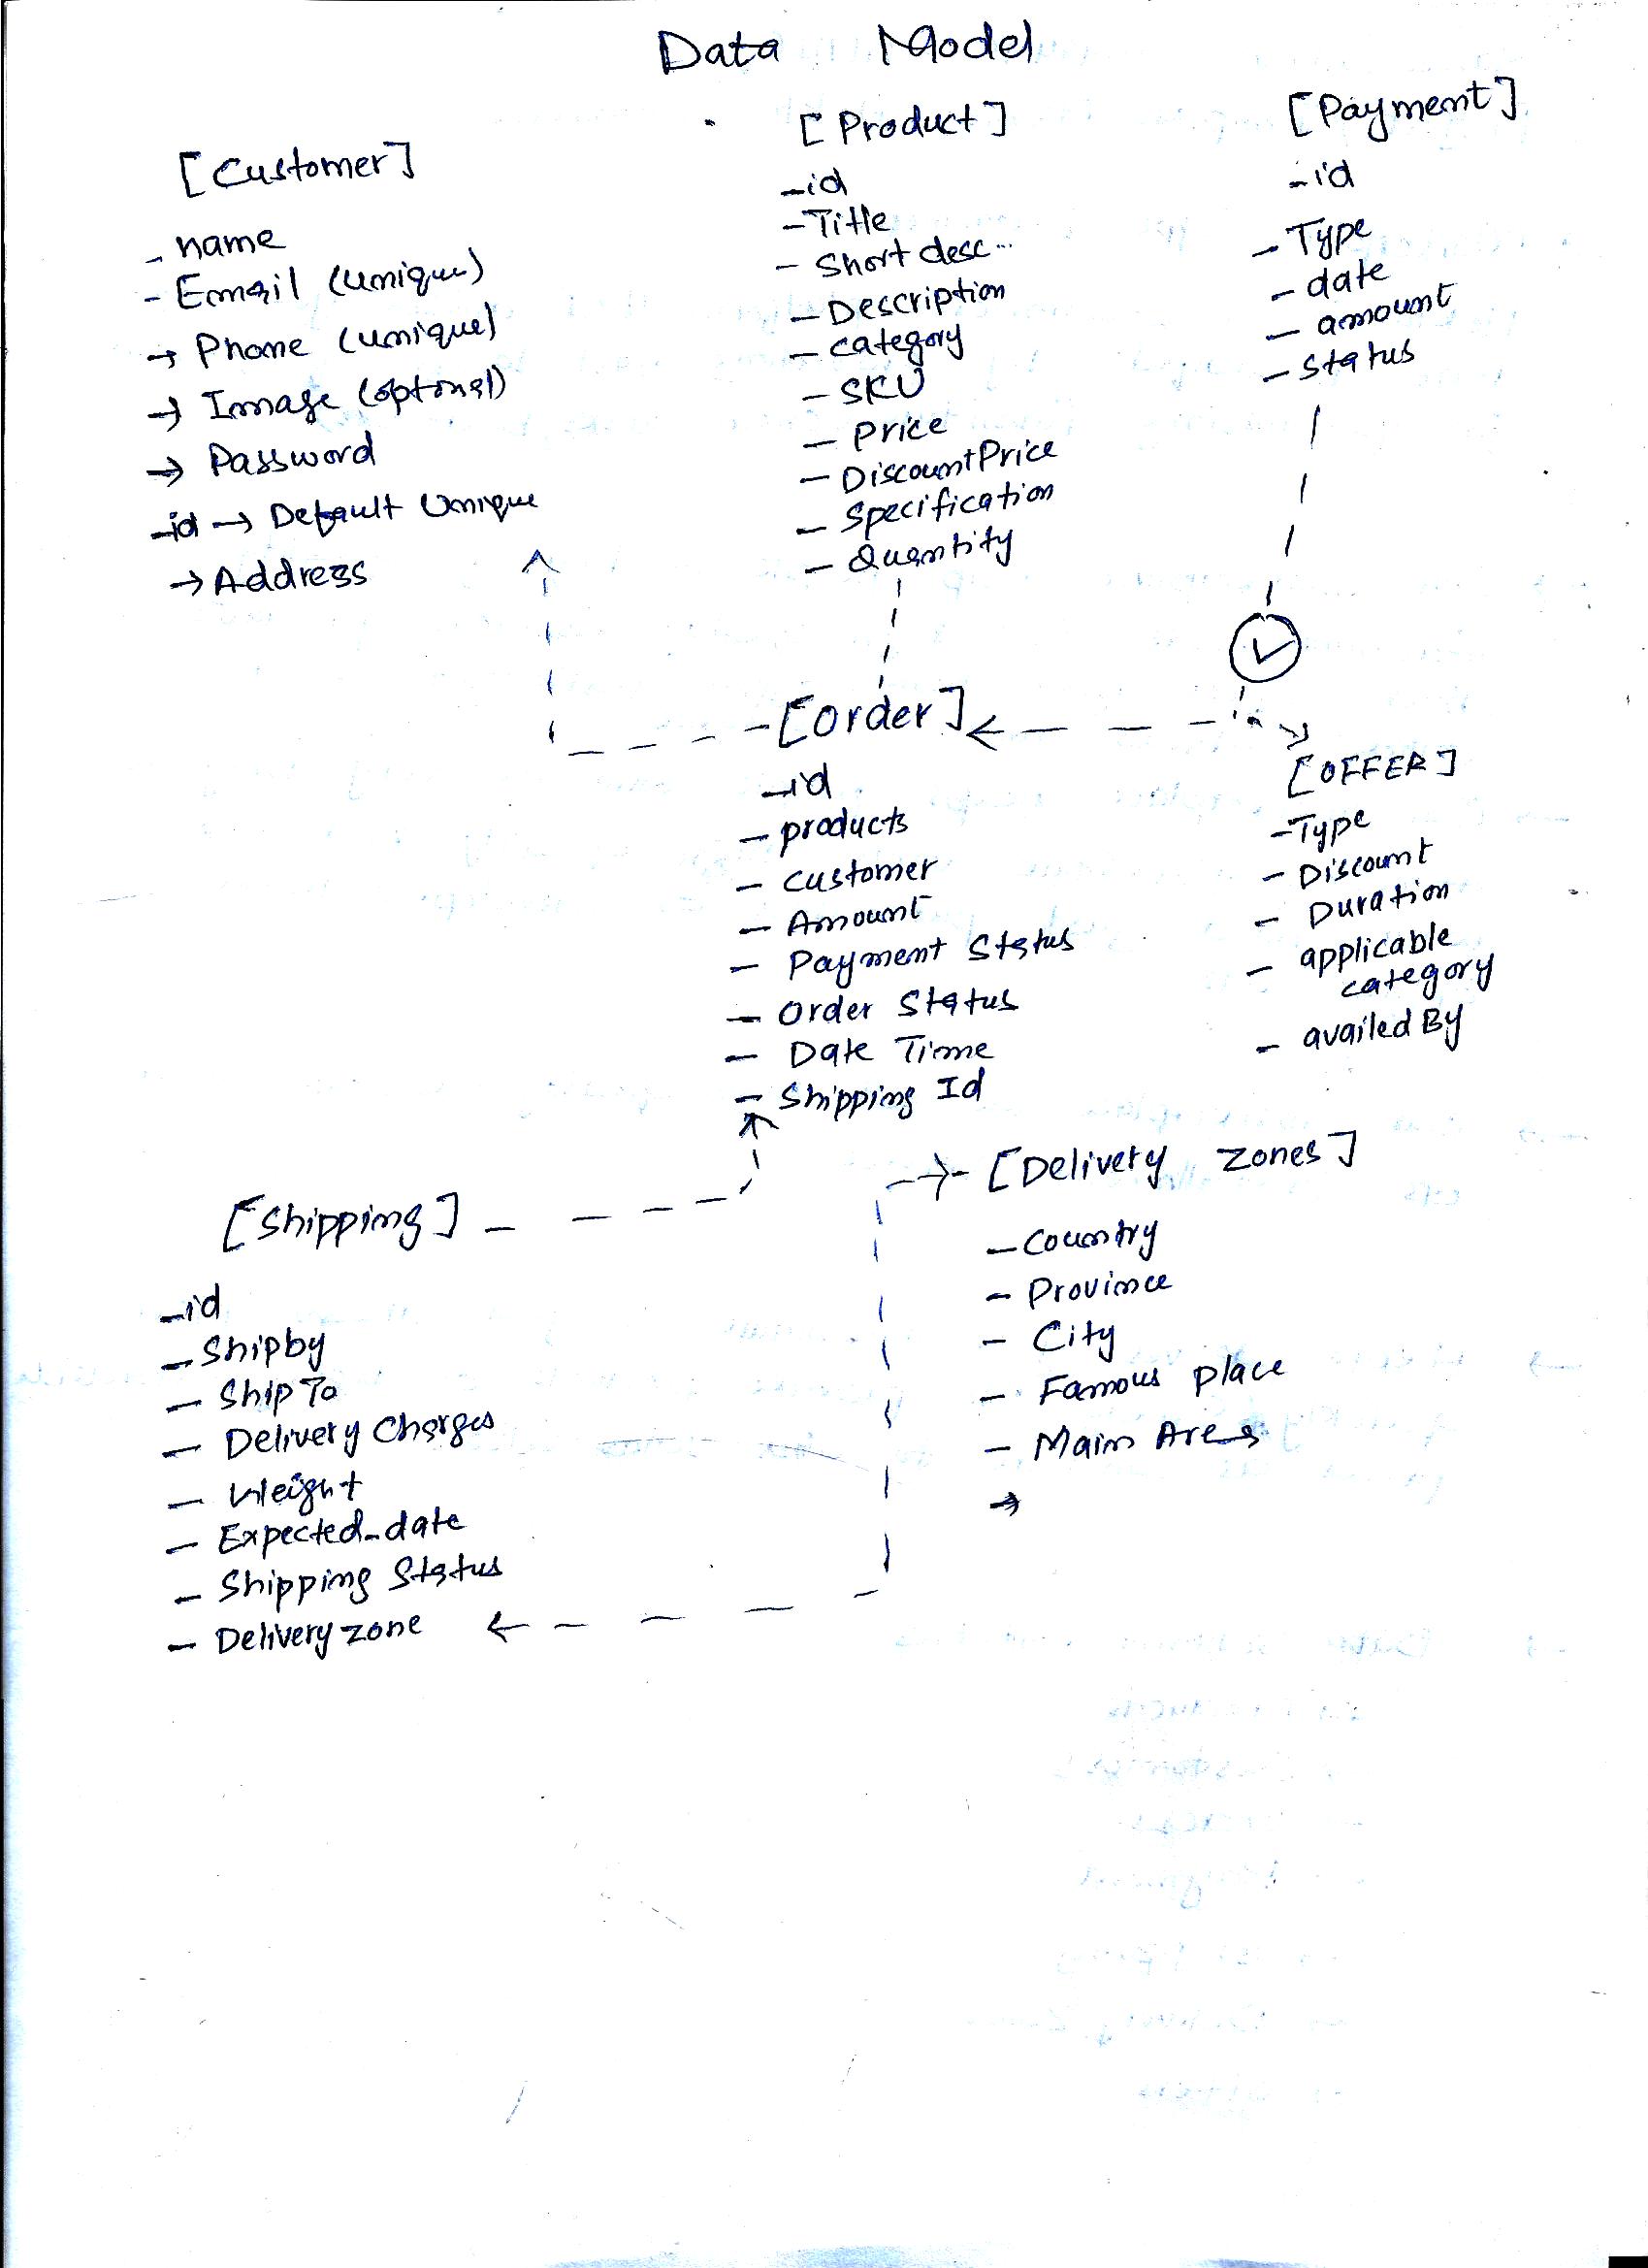 Data Model
[Customer]
- name
- Email (unique)
→ Phone (unique)
→ Image (optonal)
→ Password
_id → Default Unique
→ Address
[Product]
_id
- Title
- Short desc...
- Description
- category
- SKU
- Price
- DiscountPrice
- Specification
- Quantity
[Payment]
_id
- Type
- date
- amount
- status
[Order]
_id
- products
- customer
- Amount
- Payment Status
- Order Status
- Date Time
- Shipping Id
[OFFER]
- Type
- Discount
- Duration
- applicable
category
- availed By
[Shipping]
_id
- Shipby
- Ship To
- Delivery Charges
- Weight
- Expected_date
- Shipping Status
- Delivery zone
[Delivery zones]
- Country
- Province
- City
- Famous place
- Main Area
→